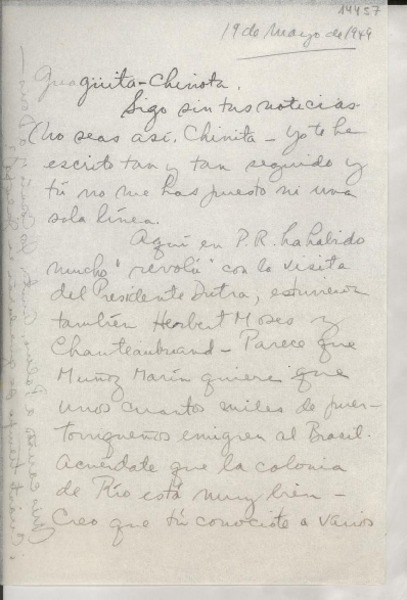 14457
19 de Mayo de 1949
güita-Chinota,
Sigo sin tus noticias.
(No seas así, Chinita - Yo te he
escrito tan y tan seguido y
tú no me has puesto ni una
sola línea.
Aquí en P.R. ha habido
mucho "revolú" con la visita
del Presidente Dutra, estuvieron
también Herbert Moses y
Chauteaubuand - Parece que
Muñoz Marín quiere que
unos cuantos miles de puer-
torriqueños emigren al Brasil.
Acuérdate que la colonia
de Río está muy bien -
Creo que tú conociste a varios